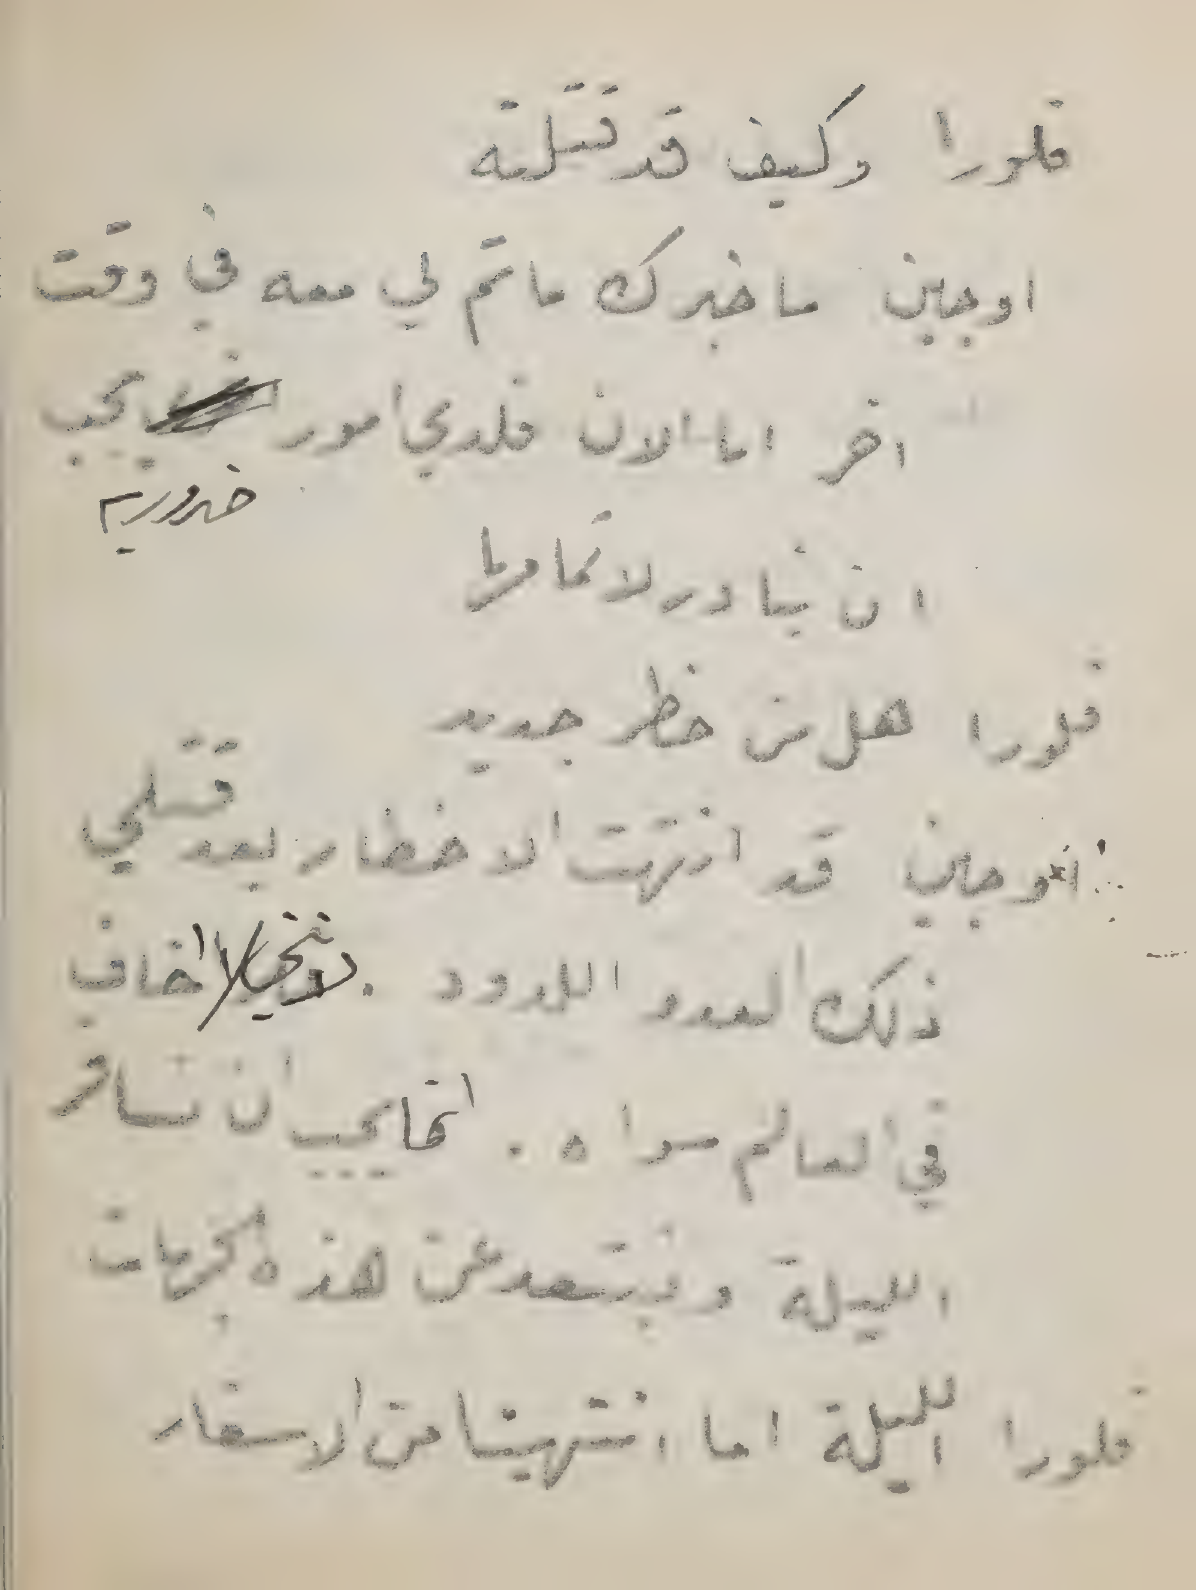 فلورا وكيف قد قتلته
اوجين ساخبرك ماتم لي معه في وقت
اخر اما الان فلدي امور يجب
ضروريه
ان نبادر لاتمامها
فلورا هل من خطر جديد
اوجين قد انتهت الاخطار بعد قتلي
ذلك العدو اللدود . اخاف
في العالم سواه . انما يجب ان نسافر
الليلة ونبتعد عن هذه الجهات
فلورا الليلة اما انتهينا من الاسفار